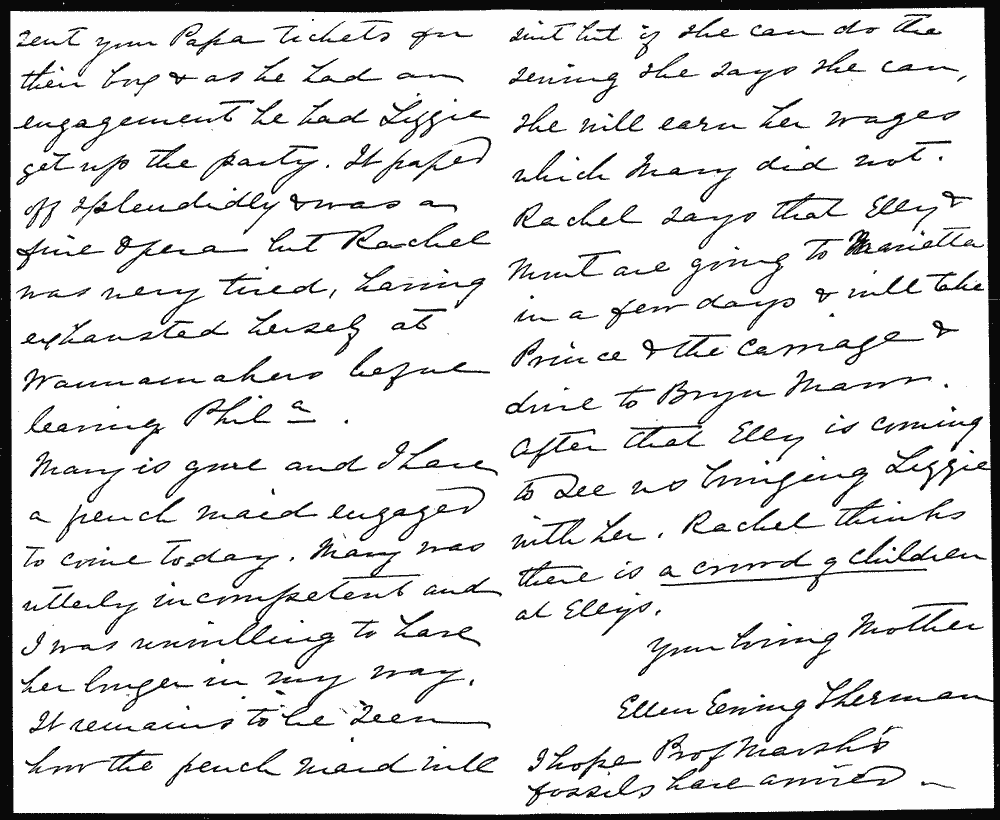 sent your Papa tickets for
their box & as he had an
engagement he had Lizzie
get up the party. It passed
off splendidly & was a
fine opera but Rachel
was very tired, having
exhausted herself at
Wannamakers before
leaving Phila.
Mary is gone and I have
a french maid engaged
to come today. Mary was
utterly incompetent and
I was unwilling to have
her longer in my way.
It remains to be seen
how the french maid will
suit but if she can do the
sewing she says she can,
she will earn her wages
which Mary did not.
Rachel says that Elly &
are going to Marietta
in a few days & will take
Prince & the carriage &
drive to Bryn Mawr.
After that Elly is coming
to see us bringing Lizzie
with her. Rachel thinks
there is a crowd of children
at Ellys.
Your loving Mother
Ellen Ewing Sherman
I hope Prof Marsh's
fossils have arrived —